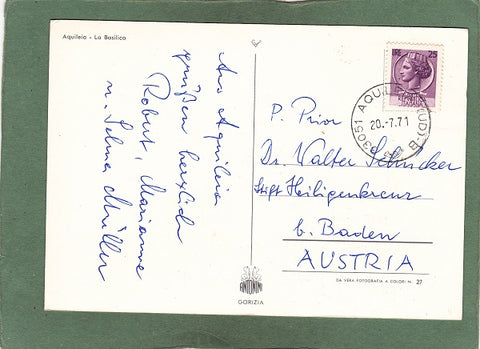 Aquileia - La Basilica
Aus Aquileia
grüßen herzlich
Robert, Marianne
u. Selma Müller
25
33051 AQUILEIA (UD) B
20.-7.71
P. Prior
Dr. Walter Schücker
Stift Heiligenkreuz
b. Baden
AUSTRIA
ANTONINI
GORIZIA
DA VERA FOTOGRAFIA A COLORI N. 27